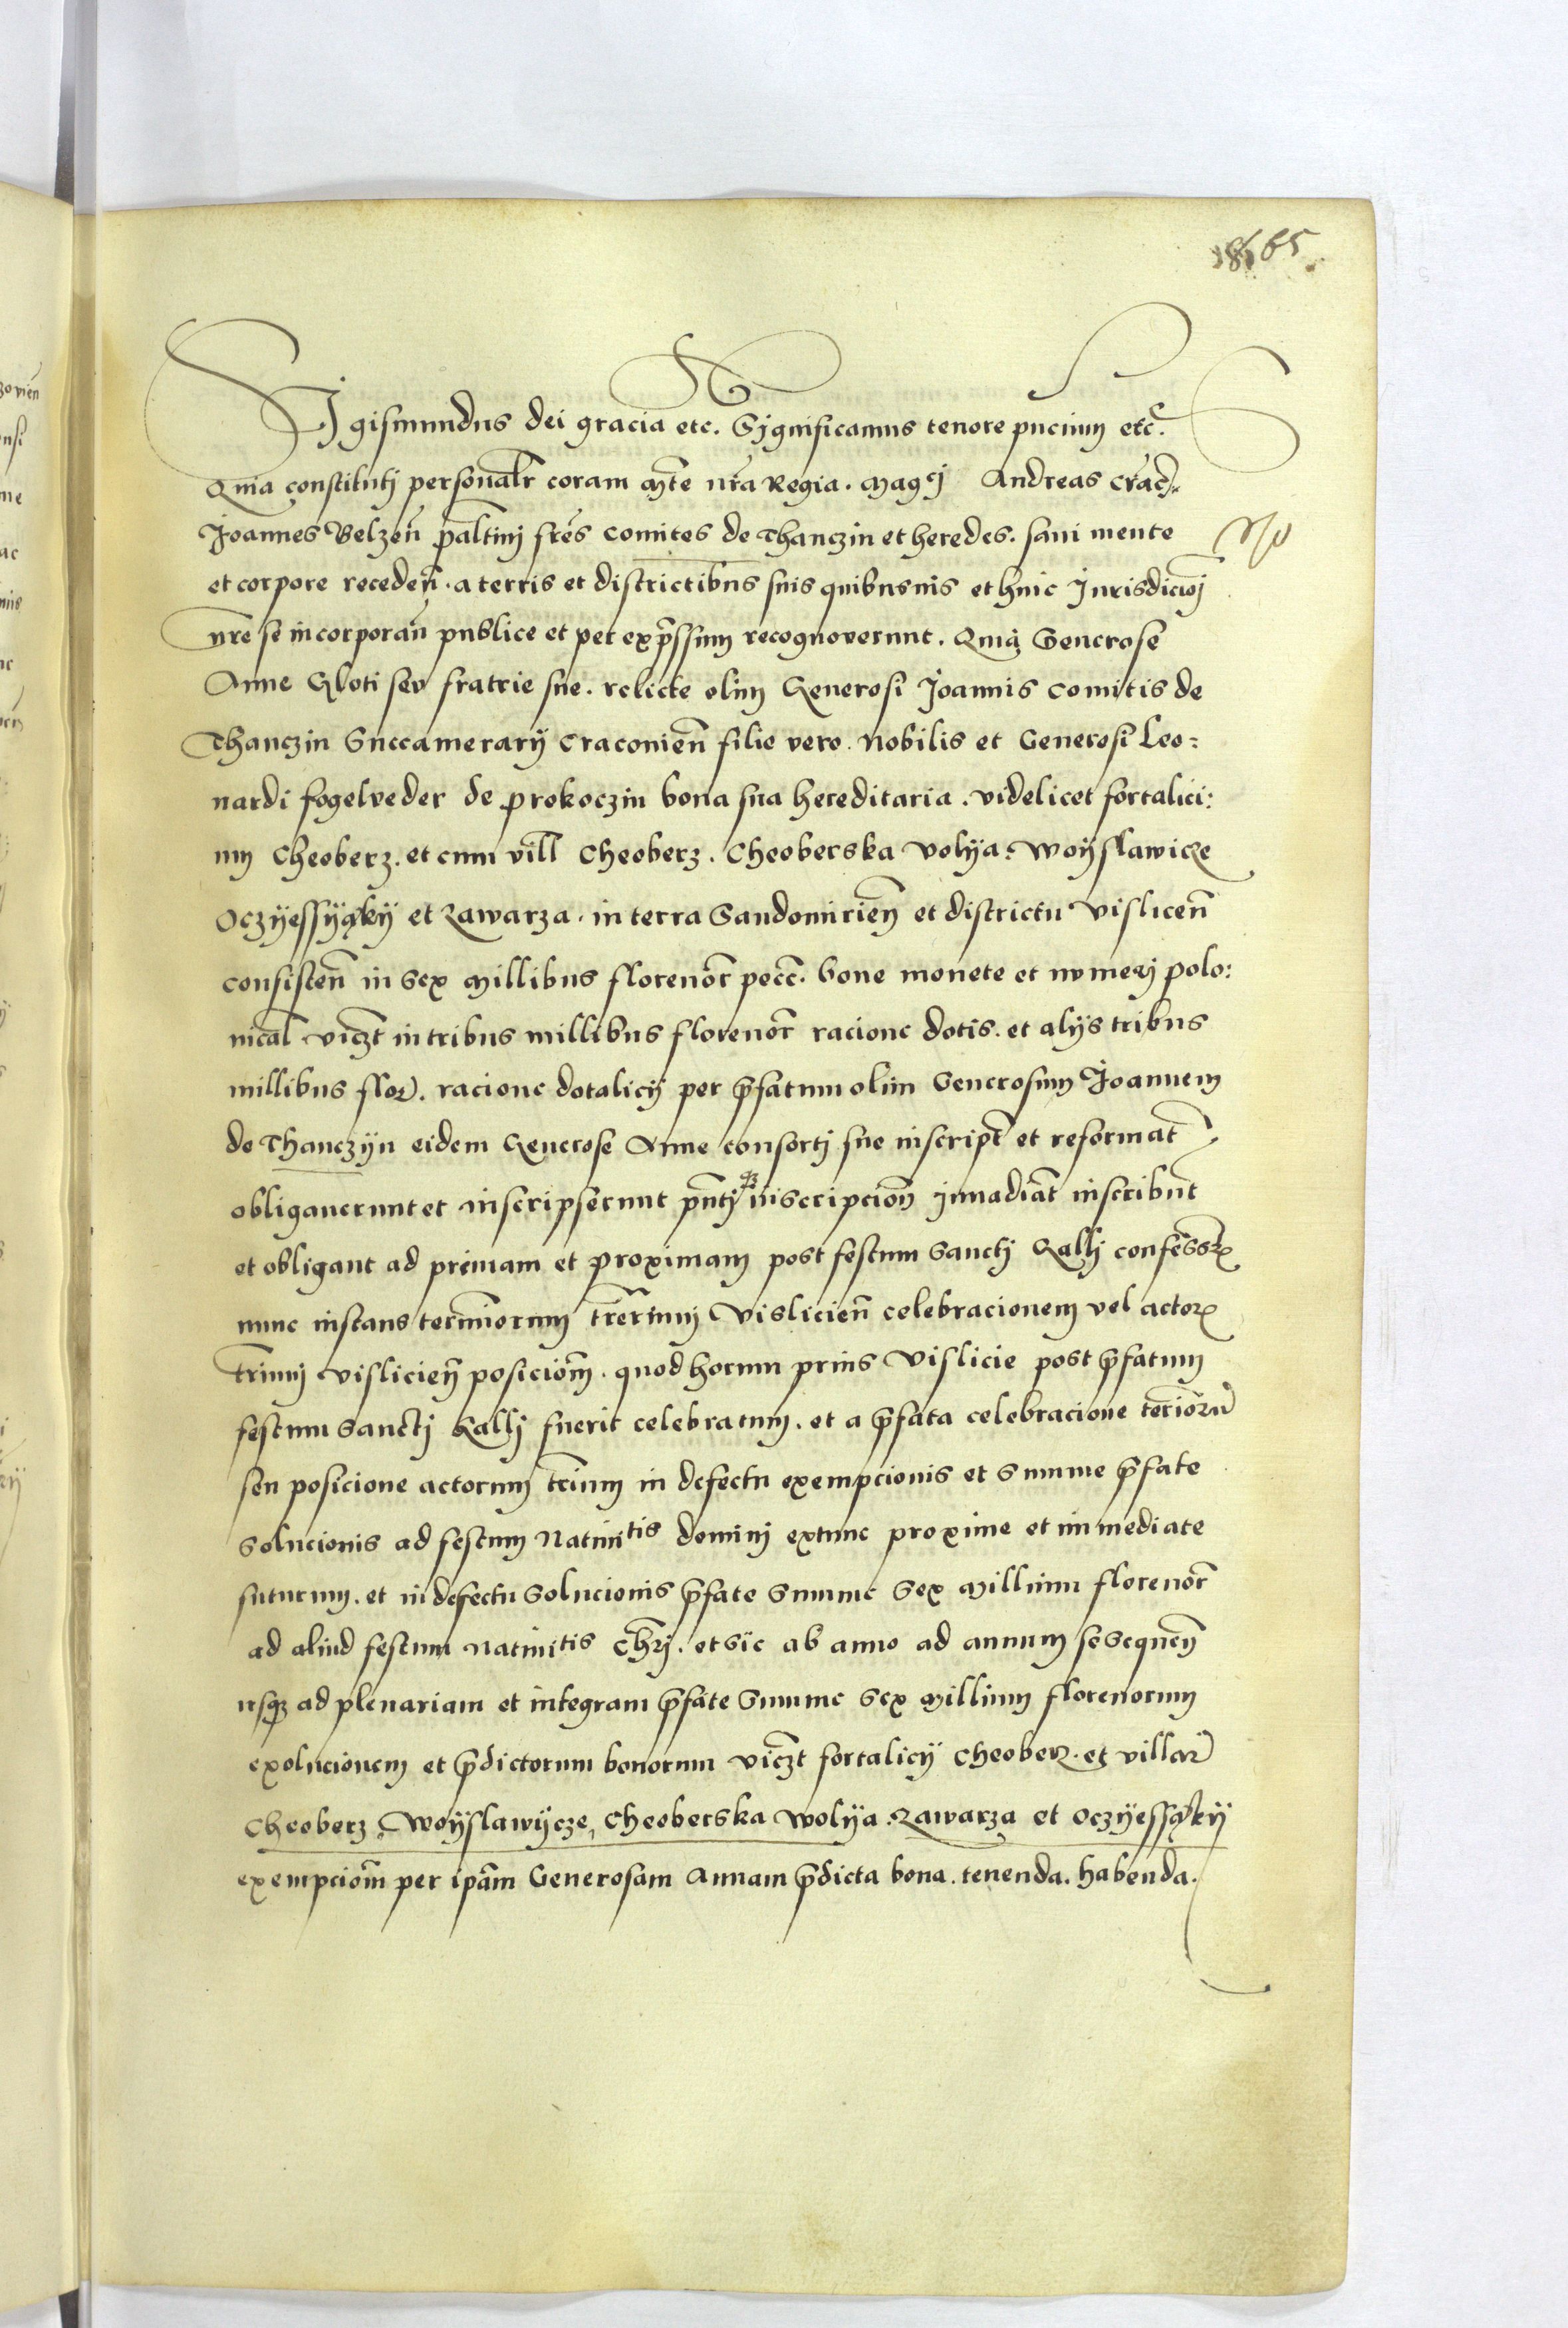 65
Sigismundus dei gracia etc. Significamus tenore pncium etc.
Quia constitutj personalr coram Mte nra Regia. Magcj Andreas Crac.
Joannes Belzen̄ paltinj fres comites de Thanczin et heredes. sani mente
et corpore receden̄. a terris et districtibus suis quibusuis et huic Jurisdicioj
nre se incorporan̄ publice et per expssum recognoverunt. Quia Generose
Anne Gloti seu fratrie sue. relicte olim Generosi Joannis comitis de
Thanczin Succamerarij Cracouien̄ filie vero. Nobilis et Generosi Leo:
nardi fogelveder de prokoczin bona sua hereditaria. videlicet fortalici:
um Cheoberz. et cum vill Cheoberz. Cheoberska volya. Woyslawicze
Oczyessyąky et Zawarza. in terra Sandomirien̄ et districtu vislicen̄
consisten̄ in sex Millibus florenor pecc. bone monete et numerj polo:
nical viczt in tribus millibus florenor racione dotis. et alijs tribus
millibus flor. racione dotalicij per pfatum olim Generosum Joannem
de Thanczyn eidem Generose Anne consortj sue inscript et reformat
obligauerunt et inscripserunt pntjqz inscripcion̄ jnuadiāt inscribūt
et obligant ad primam et proximam post festum Sanctj Galli confessor
nunc instans terminorum trrrium Vislicien̄ celebracionem vel actor
trrium vislicien̄ posiciom. quod horum prius Vislicie post pfatum
festum Sanctj Galli fuerit celebratum. et a pfata celebracione terior
seu posicione actorum trium in defectu exempcionis et Summe pfate
Solucionis ad festum Natiuitis dominj extunc proxime et immediate
futurum. et in defectu Solucionis pfate Summe Sex Millium florenor
ad aliud festum natiuitis Chrj. et sic ab anno ad annum se sequen̄
usqz ad plenariam et integram pfate Summe Sex Millium florenorum
exolucionem et pdictorum bonorum viczt fortalicij Cheoberz. et villar
Cheoberz, Woyslawycze, Cheoberska Wolya. Zawarza et Oczyessąky
exempciom per ipam Generosam Annam pdicta bona. tenenda. habenda.